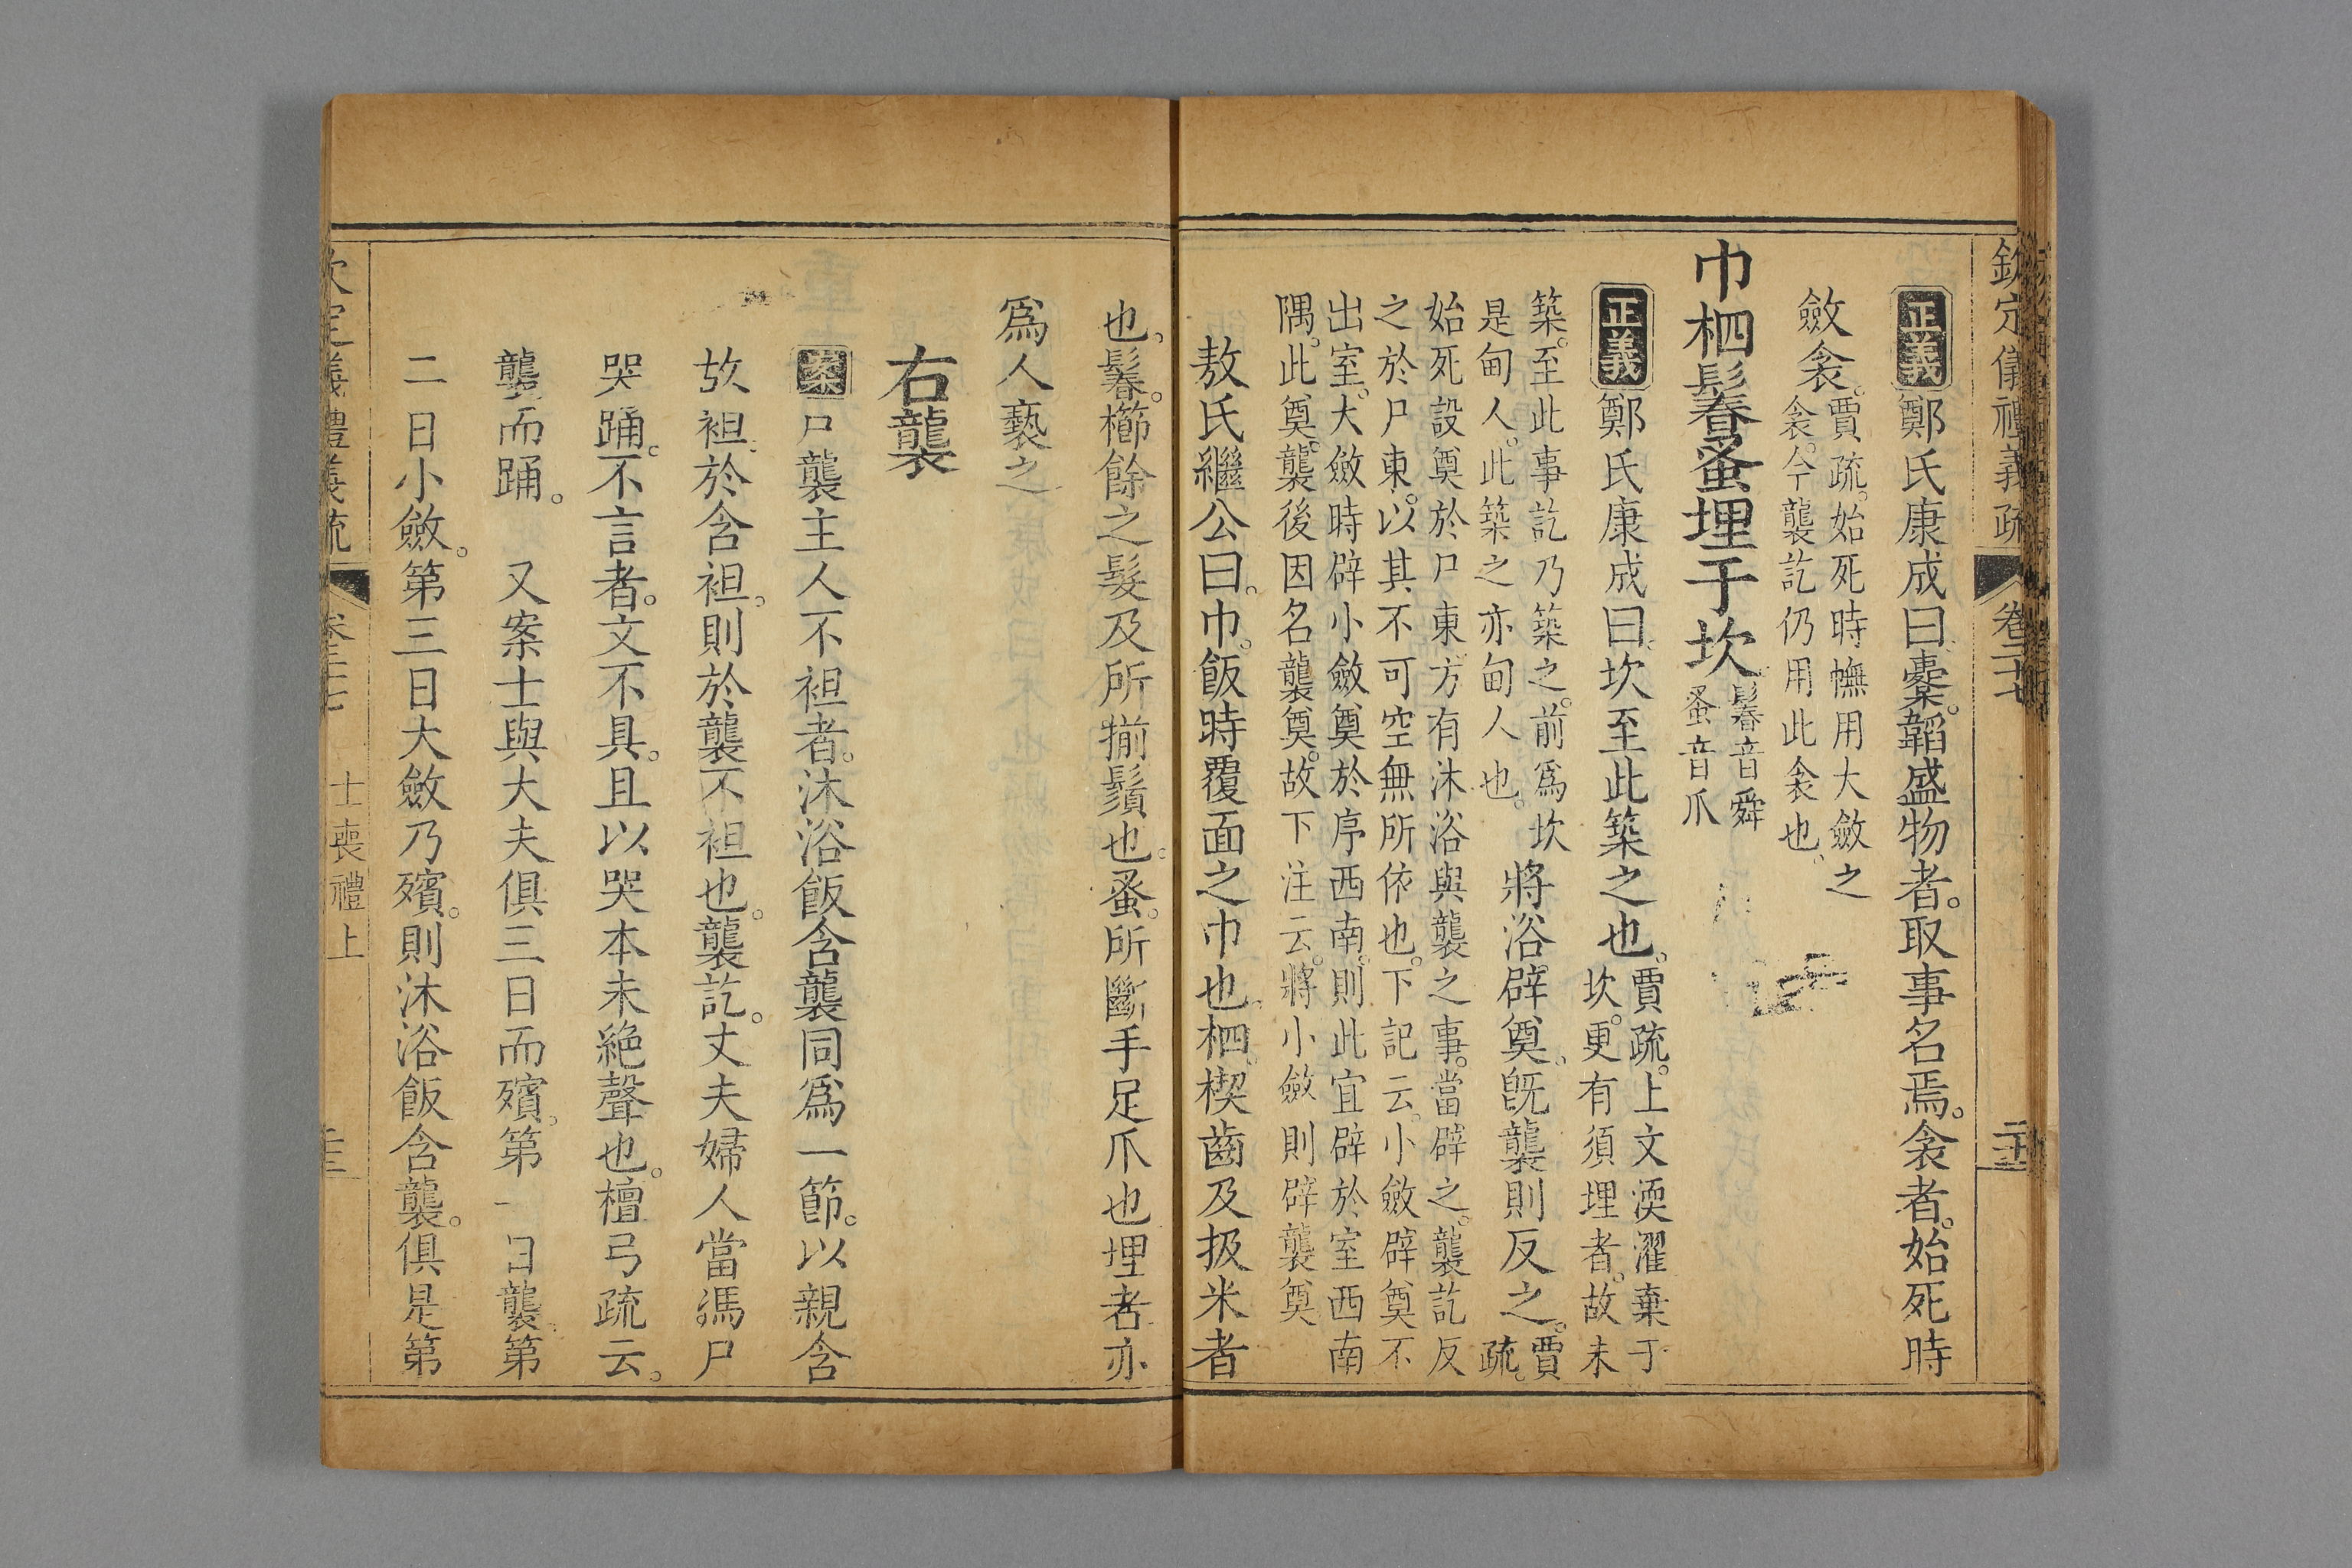 欽定儀禮義疏 卷二十七
正義 鄭氏康成曰櫜。韜盛物者。取事名焉。衾者。始死時
斂衾。
賈疏。始死時幠用大斂之
衾。今襲訖仍用此衾也。
巾柶鬊蚤埋于坎
鬊音舜
蚤音爪
正義 鄭氏康成曰坎至此築之也。
賈疏。上文渜濯棄于
坎。更有須埋者。故未
築。至此事訖乃築之。前爲坎
是甸人。此築之亦甸人也。
將浴辟奠。旣襲則反之。
賈
疏。
始死設奠於尸東。方有沐浴與襲之事。當辟之。襲訖反
之於尸東。以其不可空無所依也。下記云。小斂辟奠不
出室。大斂時辟小斂奠於序西南。則此宜辟於室西南
隅。此奠。襲後因名襲奠。故下注云。將小斂則辟襲奠
敖氏繼公曰。巾。飯時覆面之巾也。柶。楔齒及扱米者
也。鬊。櫛餘之髮及所揃鬚也。蚤。所斷手足爪也埋者亦
爲人褻之
右襲
案 尸襲主人不袒者。沐浴飯含襲同爲一節。以親含
故袒於含袒。則於襲不袒也。襲訖。丈夫婦人當馮尸
哭踊。不言者。文不具。且以哭本未絶聲也。檀弓疏云。
襲而踊。 又案士與大夫俱三日而殯。第一日襲。第
二日小斂。第三日大斂乃殯。則沐浴飯含襲。俱是第
欽定儀禮義疏 士喪禮上